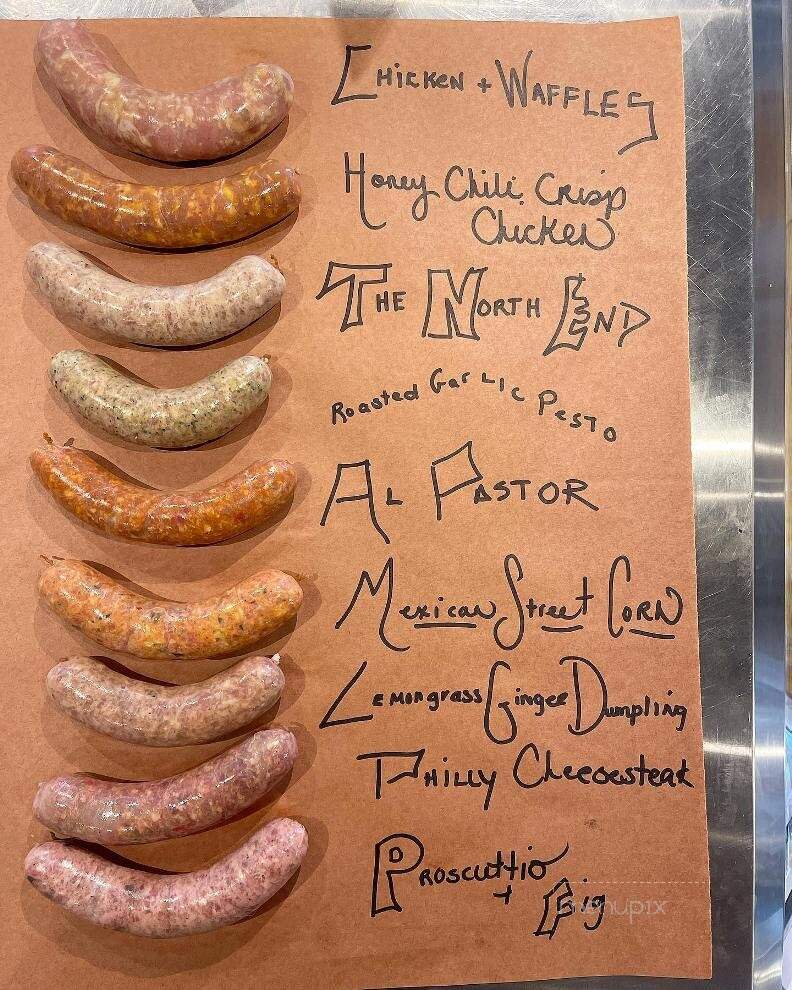 CHICKEN + WAFFLES
Honey Chili Crisp
Chicken
THE NORTH END
Roasted Garlic Pesto
AL PASTOR
Mexican Street CORN
Lemongrass Ginger Dumpling
PHILLY Cheesesteak
PROSCUTTIO
+ Fig
menupix